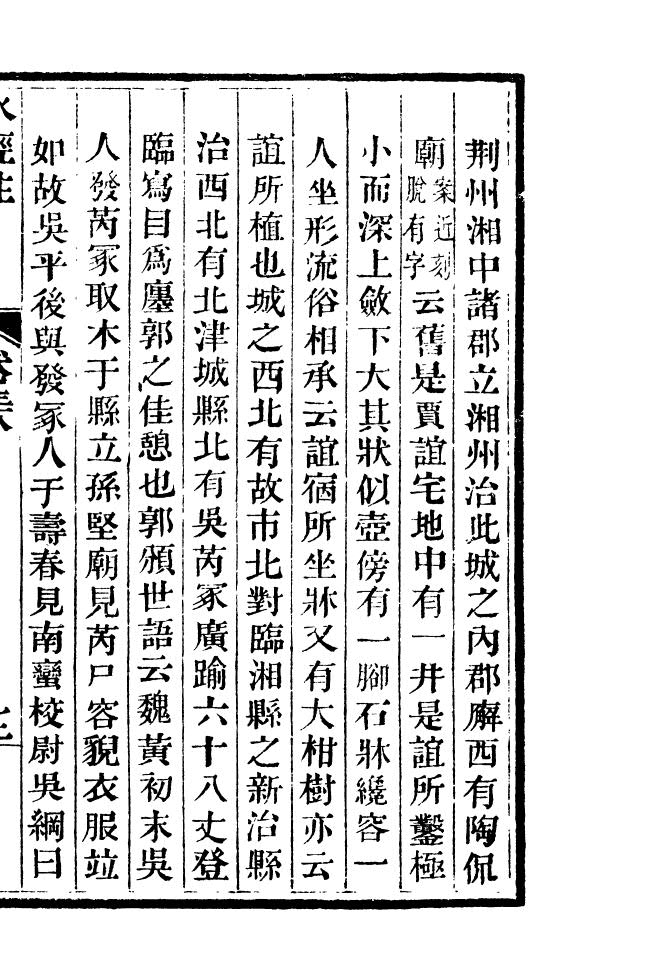 荆州湘中諸郡立湘州治此城之內郡廨西有陶侃
廟案近刻脫有字云舊是賈誼宅地中有一井是誼所鑿極
小而深上斂下大其狀似壺傍有一腳石牀纔容一
人坐形流俗相承云誼宿所坐牀又有大柑樹亦云
誼所植也城之西北有故市北對臨湘縣之新治縣
治西北有北津城縣北有吳芮冢廣踰六十八丈登
臨寫目爲廛郭之佳憩也郭頒世語云魏黃初末吳
人發芮冢取木于縣立孫堅廟見芮尸容貌衣服竝
如故吳平後與發冢人于壽春見南蠻校尉吳綱曰
水經注